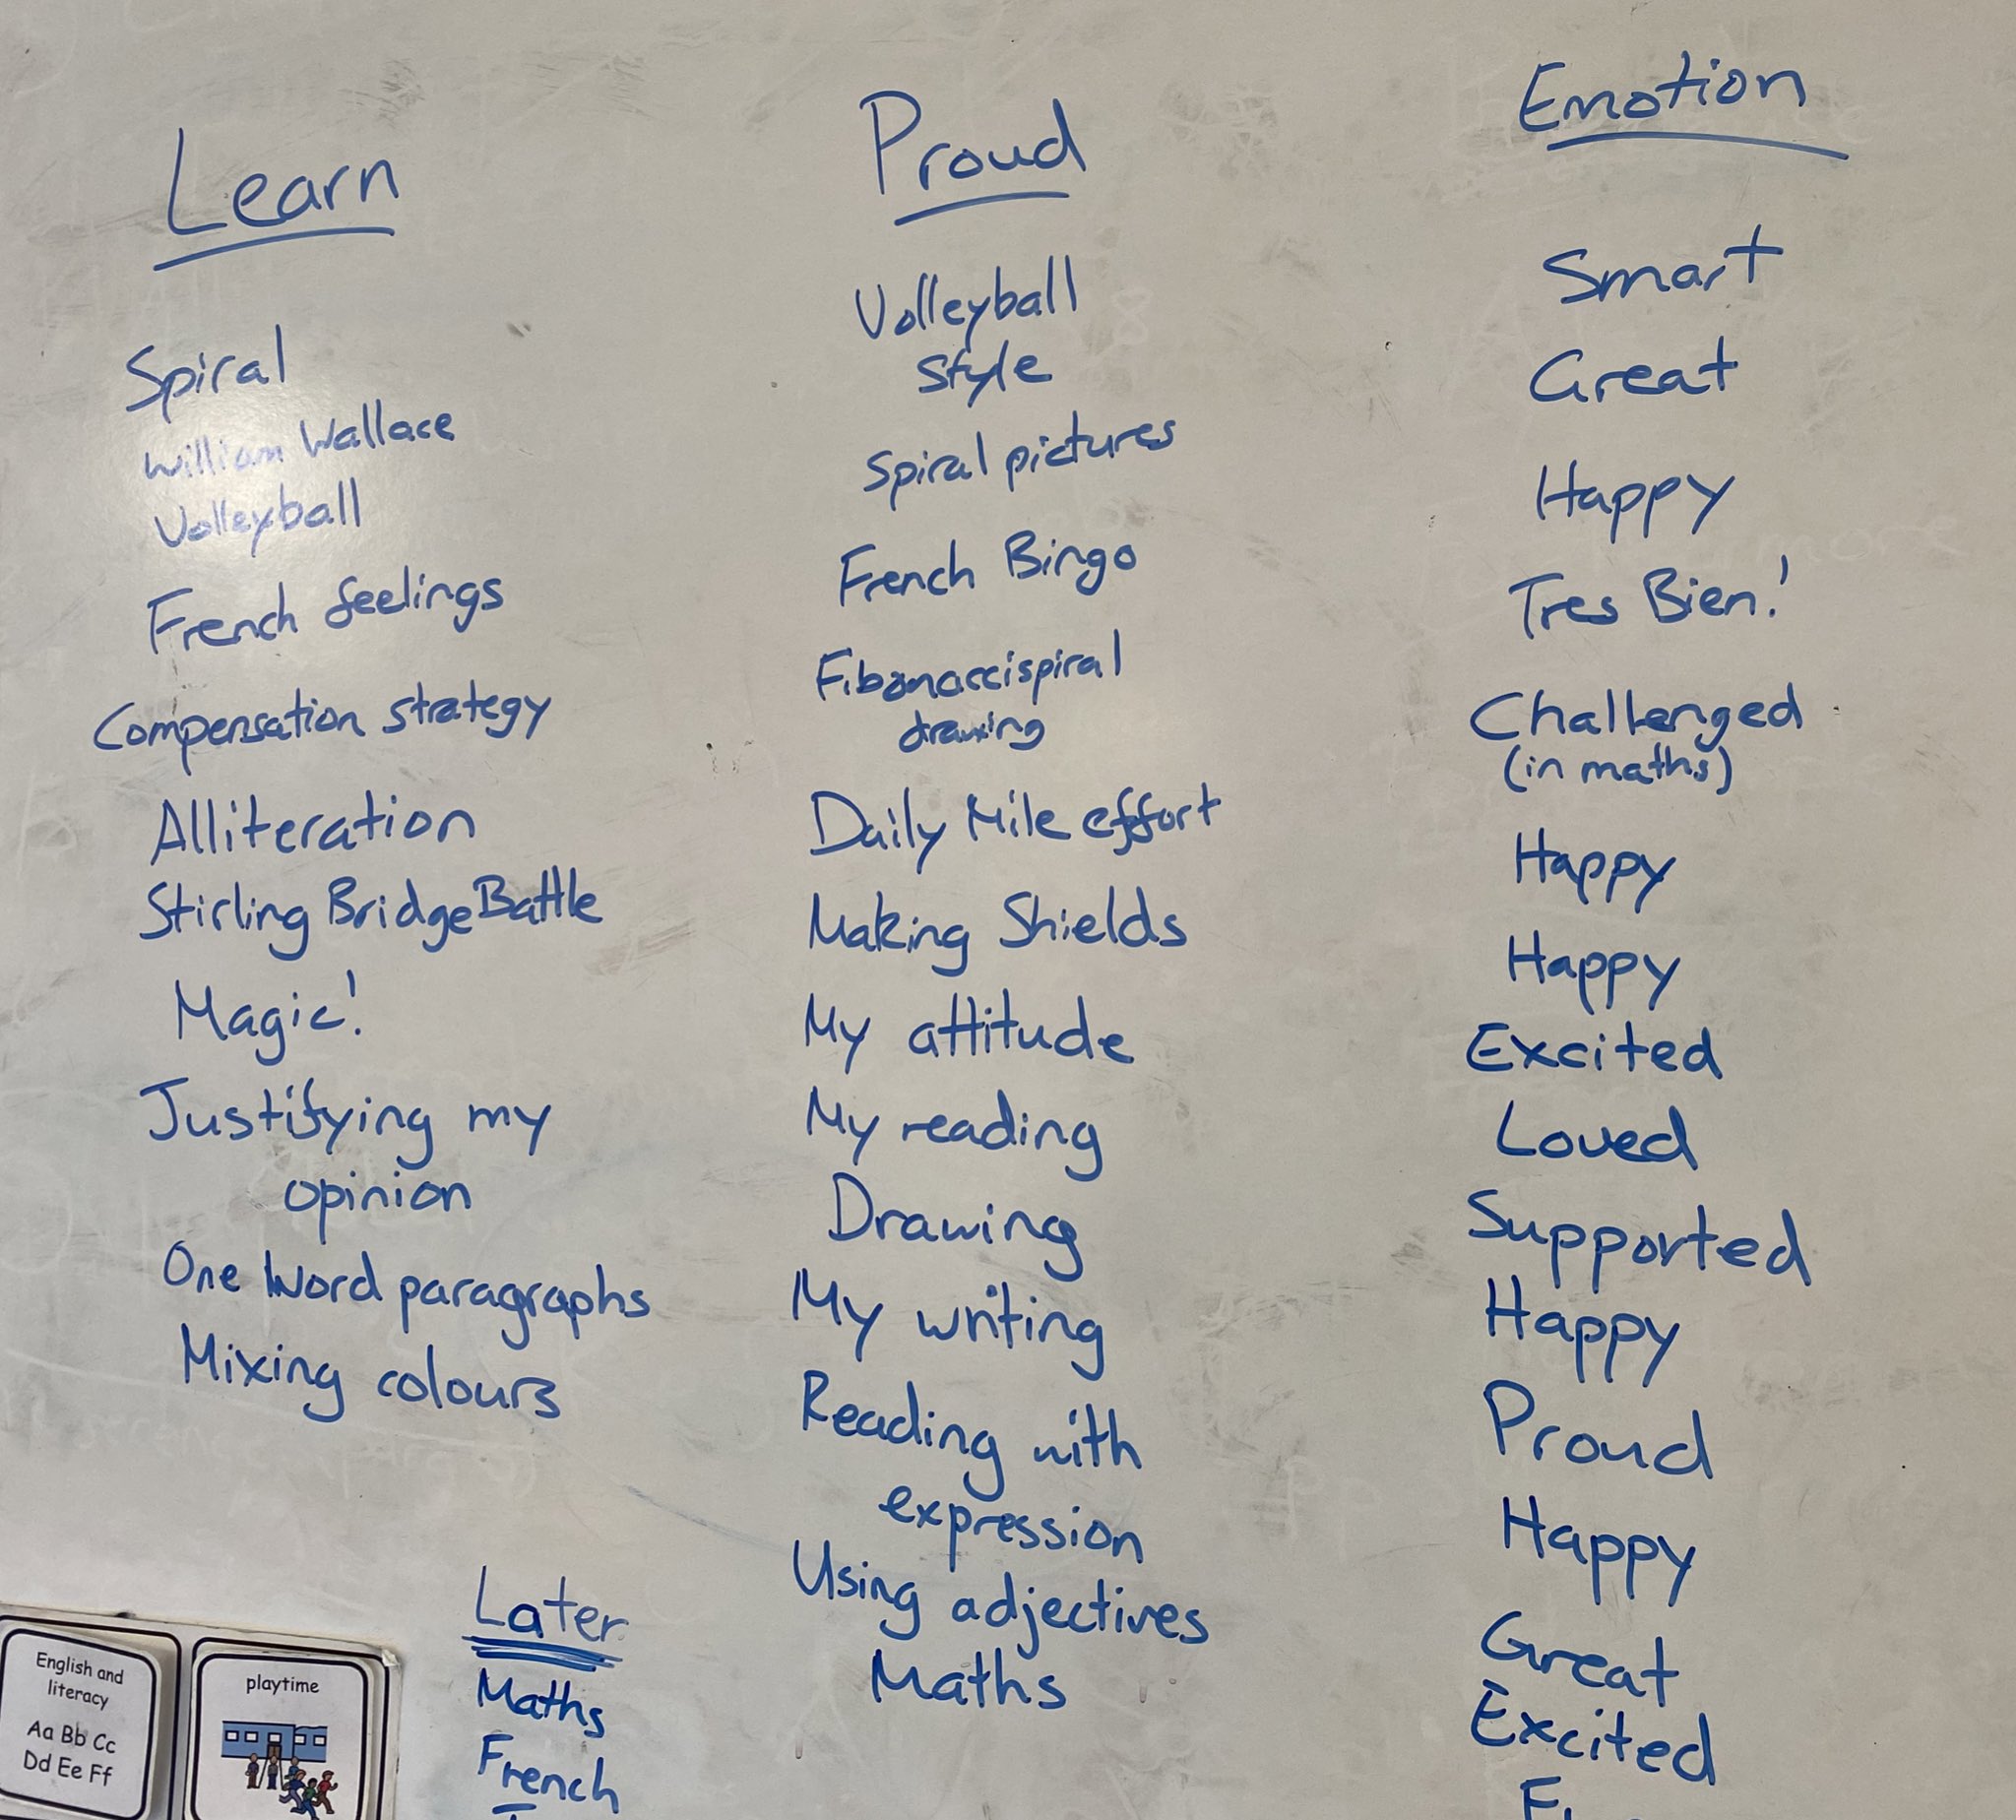 Learn
Spiral
William Wallace
Volleyball
French feelings
Compensation strategy
Alliteration
Stirling Bridge Battle
Magic!
Justifying my
opinion
One Word paragraphs
Mixing colours
Proud
Volleyball
style
Spiral pictures
French Bingo
Fibonaccispiral
drawing
Daily Mile effort
Making Shields
My attitude
My reading
Drawing
My writing
Reading with
expression
Using adjectives
Maths
Emotion
Smart
Great
Happy
Tres Bien!
Challenged
(in maths)
Happy
Happy
Excited
Loved
Supported
Happy
Proud
Happy
Great
Excited
Later
Maths
French
English and
literacy
Aa Bb Cc
Dd Ee Ff
playtime